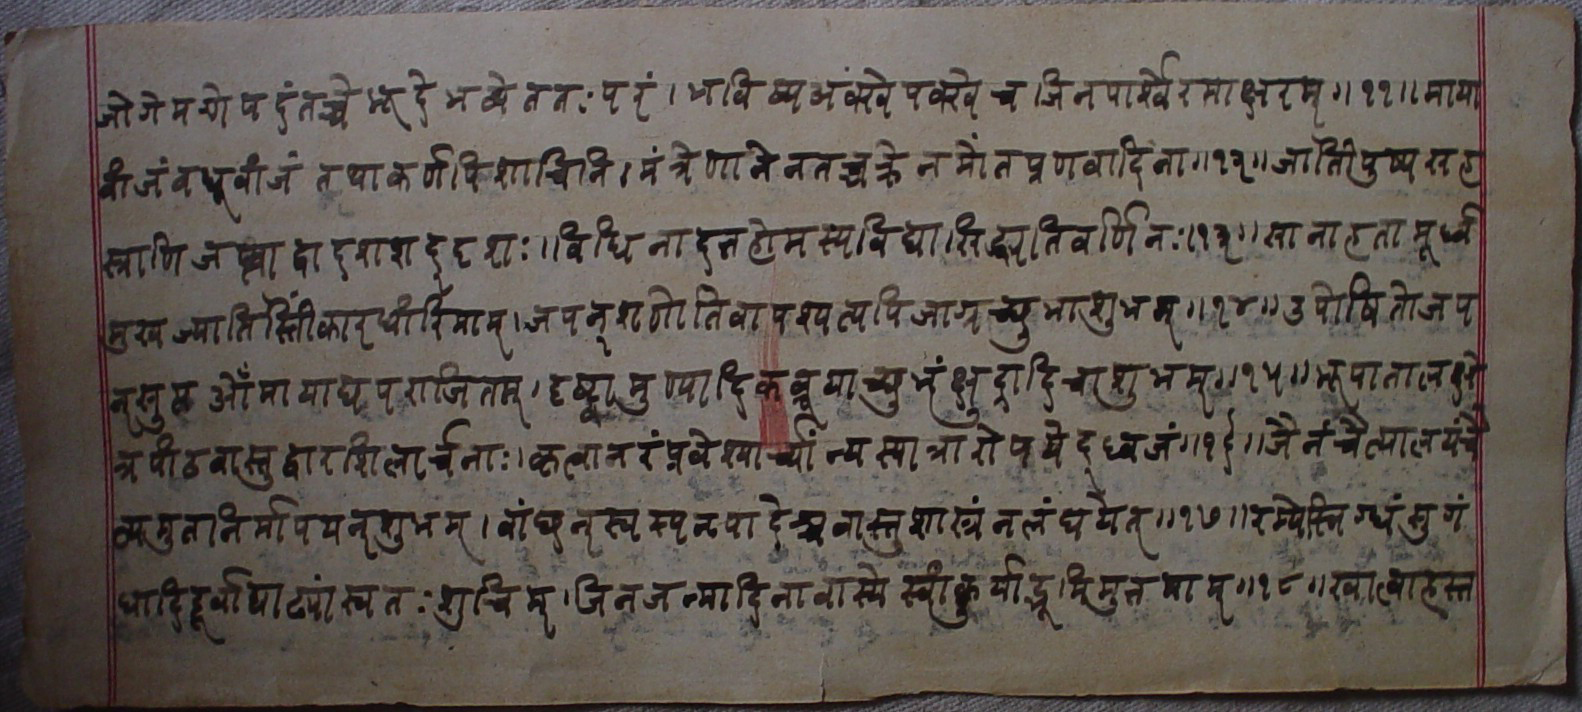 जोगे मग्गे पदं तच्चे भूदे भव्वे ततः परं । भविष्य अंक्खे पक्खे च जिनपार्श्वे रमाक्षरम् ॥ ११ ॥ माया
बीजं वधूबीजं तथा कर्णपिशाचिनि । मंत्रेणानेन तच्चक्रे नमोंत प्रणवादिना ॥ १२ ॥ जातिपुष्प सह
स्त्राणि जप्त्वा द्वादशशद्दशः ॥ विधिना दत्तहोमस्य विद्या सिद्ध्यति वर्णिनः ॥ १३ ॥ सानाहता मूर्ध्नि
मुख ज्योति र्स्त्रीकार धीरिमाम् । जपन् शृणोति वा पश्यत्यपि जाग्रच्छुभाशुभम् ॥ १४ ॥ उपोषितो जप
न् सुप्त ओँ माया द्यपराजितम् । दृष्ट्वा मुण्यादिकं ब्रूयाच्छुभं क्षुद्रादि चाशुभम् ॥ १५ ॥ भूपातालक्षे
त्रपीठवास्तुद्वारशिलार्चनाः । कृत्वा नरं प्रवेश्यार्च्यां न्यस्यात्रारोपयेद्ध्वजं ॥ १६ ॥ जैनं चैत्यालयं चै
त्यमुत निर्मापयन् शुभम् । वांछन् स्वस्य नृपादेश्च वास्तुशास्त्रं न लंघयेत् ॥ १७ ॥ रम्ये स्निग्धं सुगं
धादिदूर्वाद्याढ्यां स्वतः शुचिम् । जिनजन्मादिना वास्ये स्वीकुर्याद्भूमिमुत्तमाम् ॥ १८ ॥ खात्वा हस्त